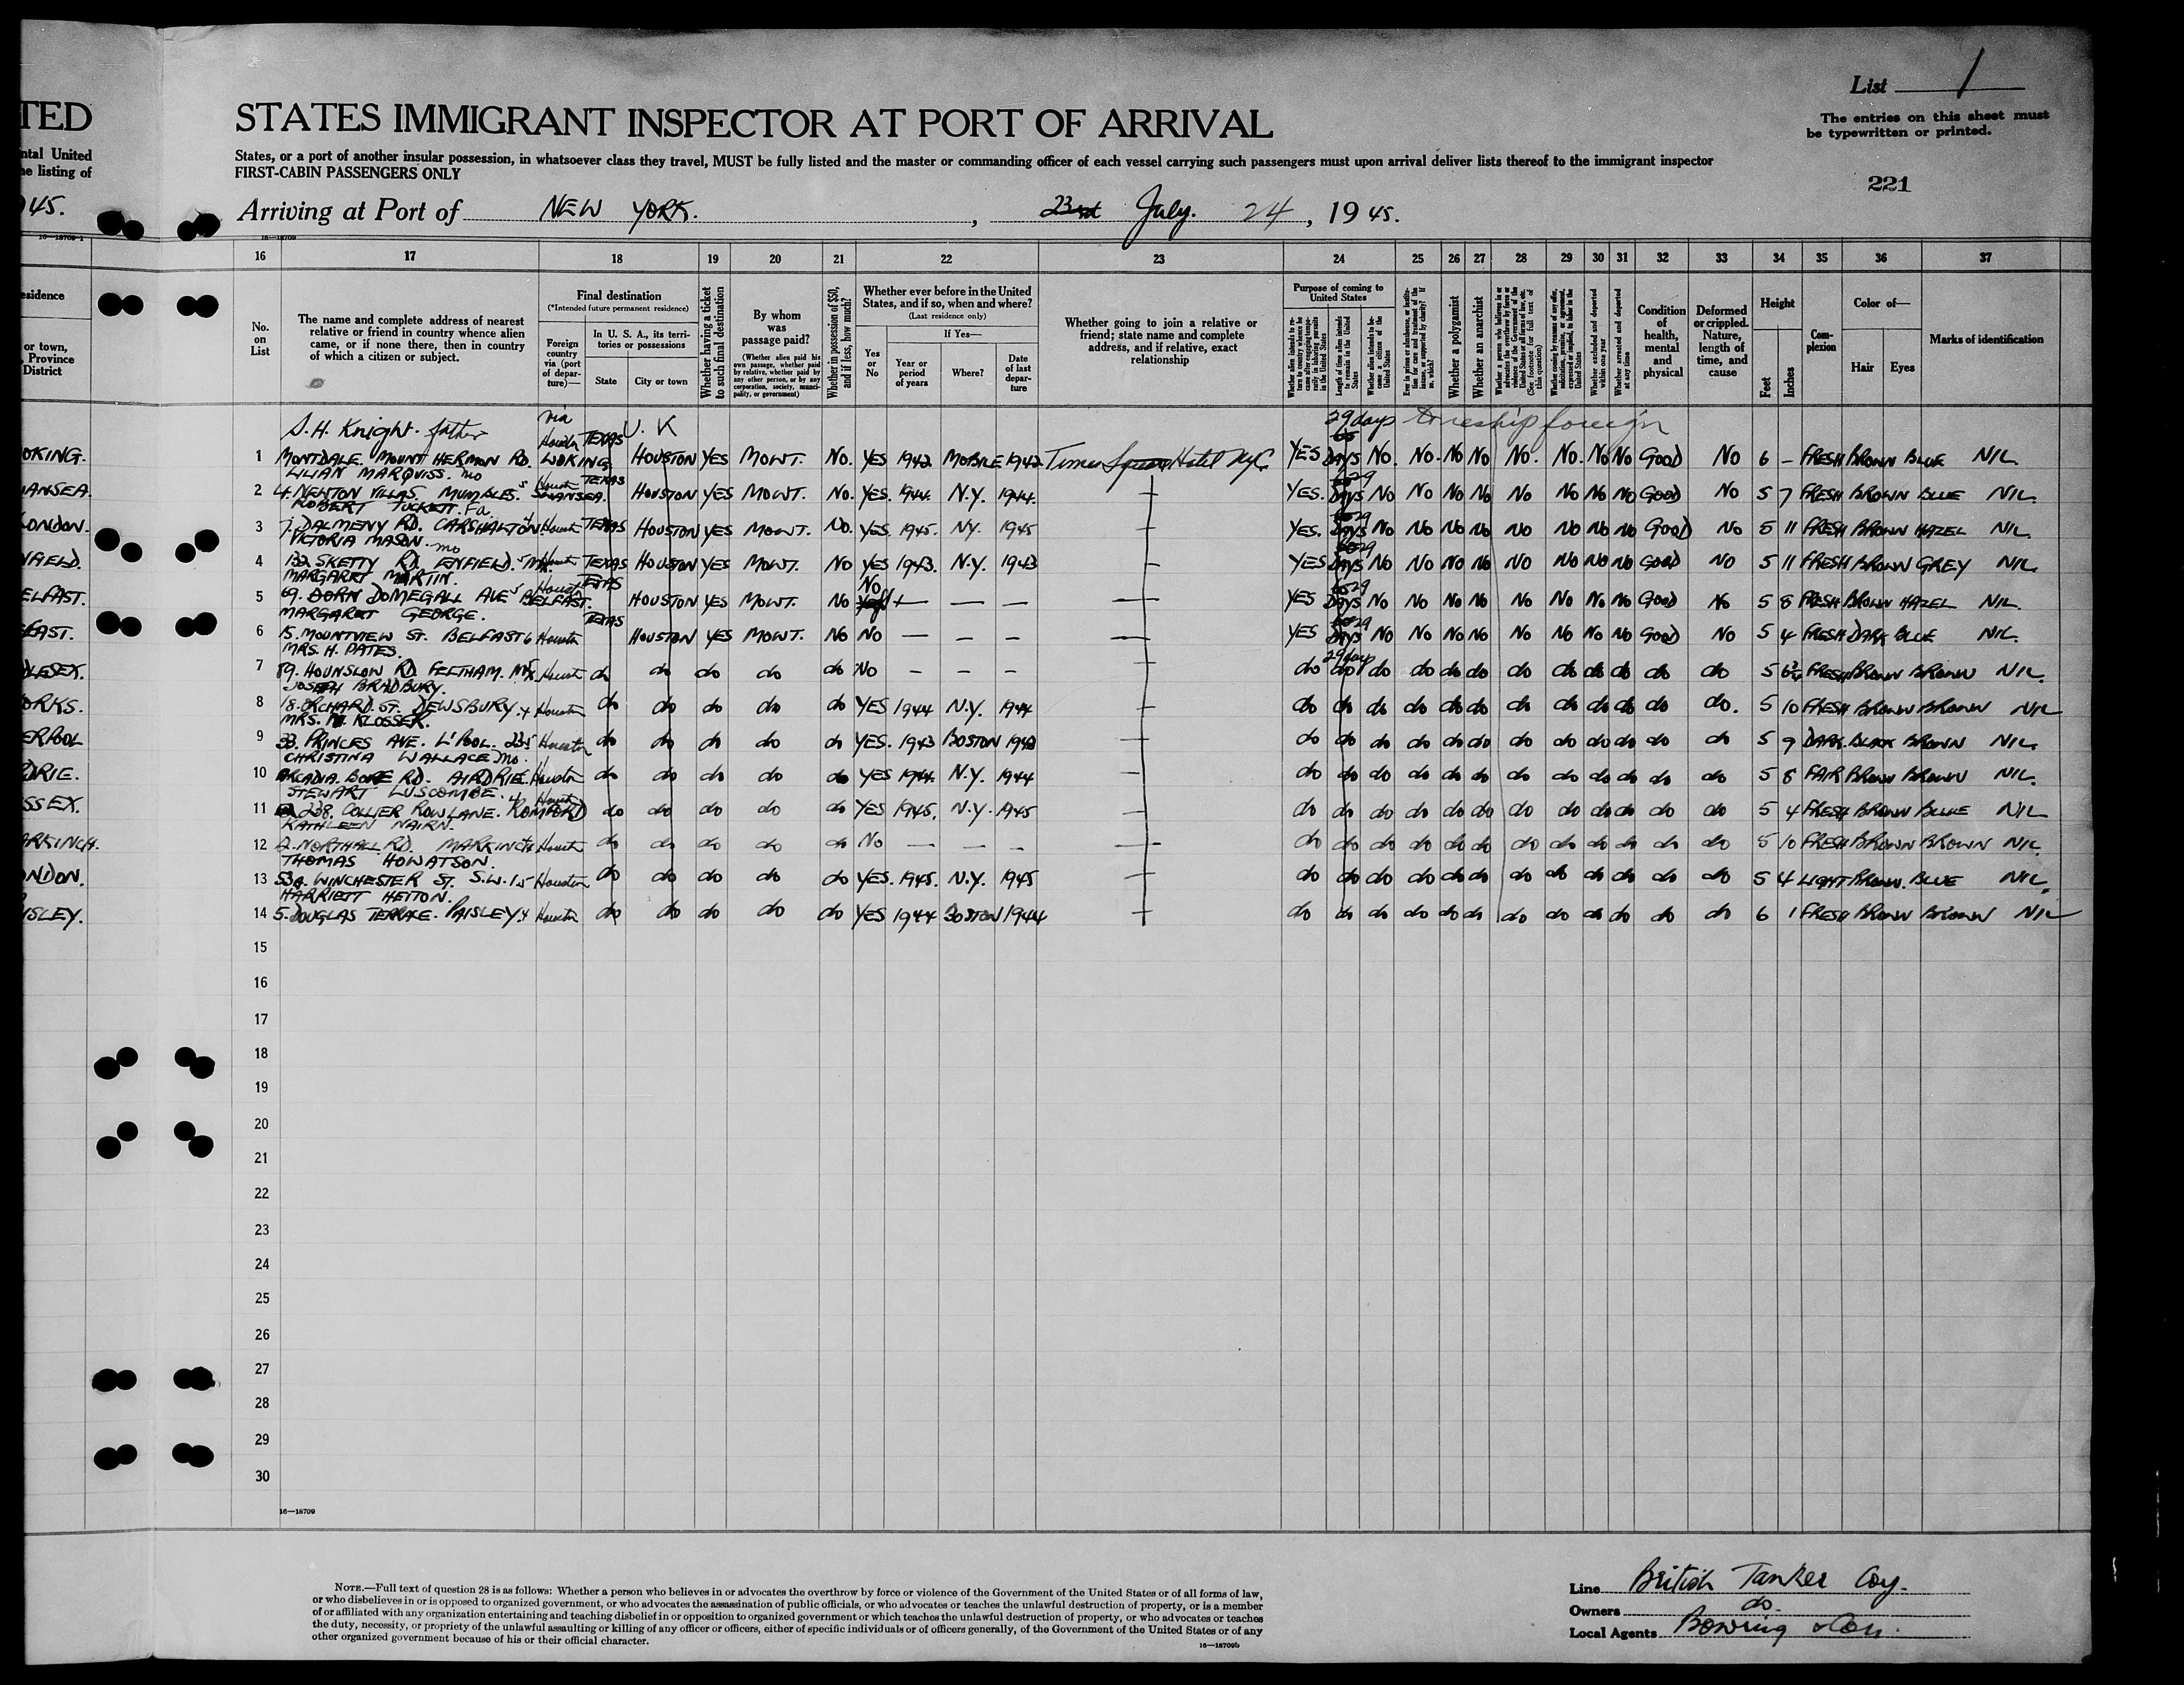 TED
STATES IMMIGRANT INSPECTOR AT PORT OF ARRIVAL
List 1
The entries on this sheet must
be typewritten or printed.
ntal United
ne listing of
States, or a port of another insular possession, in whatsoever class they travel, MUST be fully listed and the master or commanding officer of each vessel carrying such passengers must upon arrival deliver lists thereof to the immigrant inspector
FIRST-CABIN PASSENGERS ONLY
221
45.
Arriving at Port of NEW YORK. , 23rd July. 24, 1945.
16—18709-1
16—18709
16 17 18 19 20 21 22 23 24 25 26 27 28 29 30 31 32 33 34 35 36 37
esidence
or town,
, Province
District
No.
on
List
The name and complete address of nearest
relative or friend in country whence alien
came, or if none there, then in country
of which a citizen or subject.
Final destination
(*Intended future permanent residence)
Foreign
country
via (port
of depar-
ture)—
In U. S. A., its terri-
tories or possessions
State
City or town
Whether having a ticket
to such final destination
By whom
was
passage paid?
(Whether alien paid his
own passage, whether paid
by relative, whether paid by
any other person, or by any
corporation, society, munici-
pality, or government)
Whether in possession of $50,
and if less, how much?
Whether ever before in the United
States, and if so, when and where?
(Last residence only)
Yes
or
No
If Yes—
Year or
period
of years
Where?
Date
of last
depar-
ture
Whether going to join a relative or
friend; state name and complete
address, and if relative, exact
relationship
Purpose of coming to
United States
Whether alien intends to re-
turn to country whence he
came after engaging tempo-
rarily in laboring pursuits
in the United States
Length of time alien intends
to remain in the United
States
Whether alien intends to be-
come a citizen of the
United States
Ever in prison or almshouse, or institu-
tion for care and treatment of the
insane, or supported by charity? If
so, which?
Whether a polygamist
Whether an anarchist
Whether a person who believes in or
advocates the overthrow by force or
violence of the Government of the
United States or all forms of law, etc.
(See footnote for full text of
this question)
Whether coming by reason of any offer,
solicitation, promise, or agreement,
expressed or implied, to labor in the
United States
Whether excluded and deported
within one year
Whether arrested and deported
at any time
Condition
of
health,
mental
and
physical
Deformed
or crippled.
Nature,
length of
time, and
cause
Height
Feet
Inches
Com-
plexion
Color of—
Hair
Eyes
Marks of identification
S.H. Knight. father via Houston TEXAS U. K 29 days to reship foreign
OKING. 1 MONTDALE. MOUNT HERMON RD. WOKING. HOUSTON YES MOWT. No. YES 1942 MOBILE 1942 Times Square Hotel NYC YES DAYS No. No. No No No. No. No No GOOD No 6 – FRESH BROWN BLUE NIL.
LILIAN MARQUISS. mo Houston TEXAS 29
ANSEA. 2 4. NEWTON VILLAS. MUMBLES. SWANSEA. HOUSTON YES MOWT. No. YES. 1944. N.Y. 1944. YES. DAYS No No No No No No No No GOOD No 5 7 FRESH BROWN BLUE NIL.
ROBERT TUCKETT. Fa. 29
ONDON. 3 7. DALMENY RD. CARSHALTON Houston TEXAS HOUSTON YES MOWT. No. YES. 1945. NY. 1945 YES. DAYS No No No No No No No No GOOD No 5 11 FRESH BROWN HAZEL NIL.
VICTORIA MASON. mo 29
NFIELD. 4 132 SKETTY RD. ENFIELD. Houston TEXAS HOUSTON YES MOWT. No YES 1943. N.Y. 1943 YES DAYS No No No No No No No No GOOD No 5 11 FRESH BROWN GREY NIL.
MARGARET MARTIN. Houston TEXAS No 29
ELFAST. 5 69. DORN DOMEGALL AVE BELFAST. HOUSTON YES MOWT. No Yes — — — YES DAYS No No No No No No No No GOOD No 5 8 FRESH BROWN HAZEL NIL.
MARGARET GEORGE. TEXAS 29
FAST. 6 15. MOUNTVIEW ST. BELFAST Houston HOUSTON YES MOWT. No No — — — YES DAYS No No No No No No No No GOOD No 5 4 FRESH DARK BLUE NIL.
MRS. H. PATES. 29 days
DLESEX. 7 89. HOUNSLOW RD. FELTHAM. MX Houston do do do do do No – – – do do do do do do do do do do do do 5 6½ FRESH BROWN BROWN NIL.
JOSEPH BRADBURY.
ORKS. 8 18. ORCHARD. ST. DEWSBURY. Houston do do do do do YES 1944 N.Y. 1944 do do do do do do do do do do do do. 5 10 FRESH BROWN BROWN NIL
MRS. KLOSSER.
ERPOOL 9 33. PRINCES AVE. L'POOL. Houston do do do do do YES. 1943 BOSTON 1943 do do do do do do do do do do do do 5 9 DARK. BLACK BROWN NIL.
CHRISTINA WALLACE mo.
DRIE. 10 ARCADIA. RD. AIRDRIE. Houston do do do do do YES 1944. N.Y. 1944 do do do do do do do do do do do do 5 8 FAIR BROWN BROWN NIL.
STEWART LUSCOMBE. Houston
SSEX. 11 238. COLLIER ROW LANE. ROMFORD do do do do do YES 1945. N.Y. 1945 do do do do do do do do do do do do 5 4 FRESH BROWN BLUE NIL
KATHLEEN NAIRN.
ARKINCH. 12 2. NORTHALL RD. MARKINCH Houston do do do do do No — – – do do do do do do do do do do do do 5 10 FRESH BROWN BROWN NIL.
THOMAS HOWATSON.
ONDON. 13 53a. WINCHESTER ST. S.W.1 Houston do do do do do YES. 1945. N.Y. 1945 do do do do do do do do do do do do 5 4 LIGHT BROWN. BLUE NIL.
HARRIETT HETTON.
ISLEY. 14 5. DOUGLAS TERRACE. PAISLEY. Houston do do do do do YES 1944 BOSTON 1944 do do do do do do do do do do do do 6 1 FRESH BROWN BROWN NIL
15
16
17
18
19
20
21
22
23
24
25
26
27
28
29
30
16—18709
NOTE.—Full text of question 28 is as follows: Whether a person who believes in or advocates the overthrow by force or violence of the Government of the United States or of all forms of law,
or who disbelieves in or is opposed to organized government, or who advocates the assassination of public officials, or who advocates or teaches the unlawful destruction of property, or is a member
of or affiliated with any organization entertaining and teaching disbelief in or opposition to organized government or which teaches the unlawful destruction of property, or who advocates or teaches
the duty, necessity, or propriety of the unlawful assaulting or killing of any officer or officers, either of specific individuals or of officers generally, of the Government of the United States or of any
other organized government because of his or their official character.
16—18709b
Line British Tanker Coy.
Owners do.
Local Agents Bowring & Co.